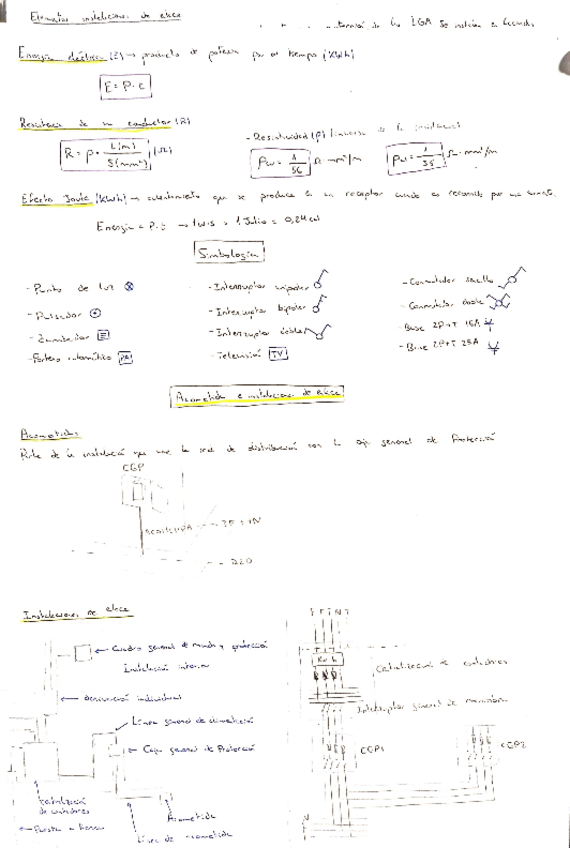 Elementos instalaciones de enlace
LGA se
Energía eléctrica (E) → producto de potencia por el tiempo (KWh)
E = P · t
Resistencia de un conductor (R)
R = ρ · L(m) / S(mm²) (Ω)
- Resistividad (ρ) (inverso de la
1 / 56 Ω · mm²/m
1 / 35 Ω · mm²/m
Efecto Joule (KWh) → calentamiento que se produce en un receptor cuando es recorrido por una
Energía = P · t → 1 W·s = 1 Julio = 0,24 cal
Simbología
- Punto de luz
- Pulsador
- Zumbador
- Portero automático PA
- Interruptor unipolar
- Interruptor bipolar
- Interruptor doble
- Televisión TV
- Conmutador sencillo
- Conmutador doble
- Base 2P+T 16A
- Base 2P+T 25A
Acometida e instalaciones de enlace
Acometidas
Parte de la instalación que une la red de distribución con la caja general de Protección
CGP
ACOMETIDA
3F + N
Instalaciones de enlace
Cuadro general de mando y protección
Instalación interior
Derivación individual
Línea general de alimentación
Caja general de Protección
Centralización de contadores
Puesta a tierra
Acometida
Línea de acometida
Kw h
Centralización de contadores
Interruptor general de maniobra
CGP1
CGP2
N